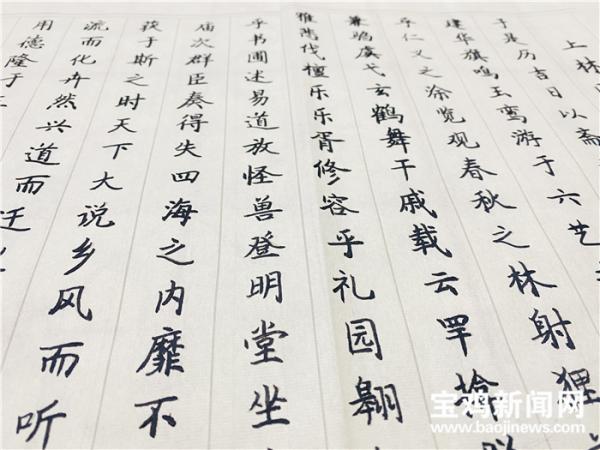 上林
于是历吉日以斋
建华旗鸣玉鸾游于六艺
乎仁义之涂览观春秋之林射狸
兼虞弋玄鹤舞干戚载云罕
雅悲伐檀乐乐胥修容乎礼园翱
乎书圃述易道放怪兽登明堂坐
庙次群臣奏得失四海之内靡不
获于斯之时天下大说乡风而听
流而化卉然兴道而迁
用德隆于三
宝鸡新闻网
www.baojinews.com